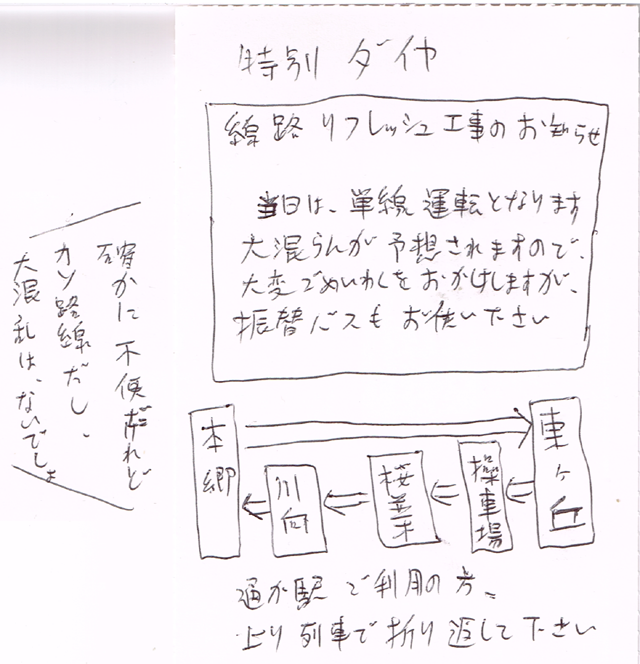 特別 ダイヤ
線路 リフレッシュ工事のお知らせ
当日は、単線運転となります
大混らんが予想されますので、
大変ごめいわくをおかけしますが、
振替バスもお使い下さい
本郷
川向
桜並木
操車場
東ヶ丘
通か駅ご利用の方、
上り列車で折り返して下さい
確かに不便だけれど
カソ路線だし、
大混乱は、ないでしょ